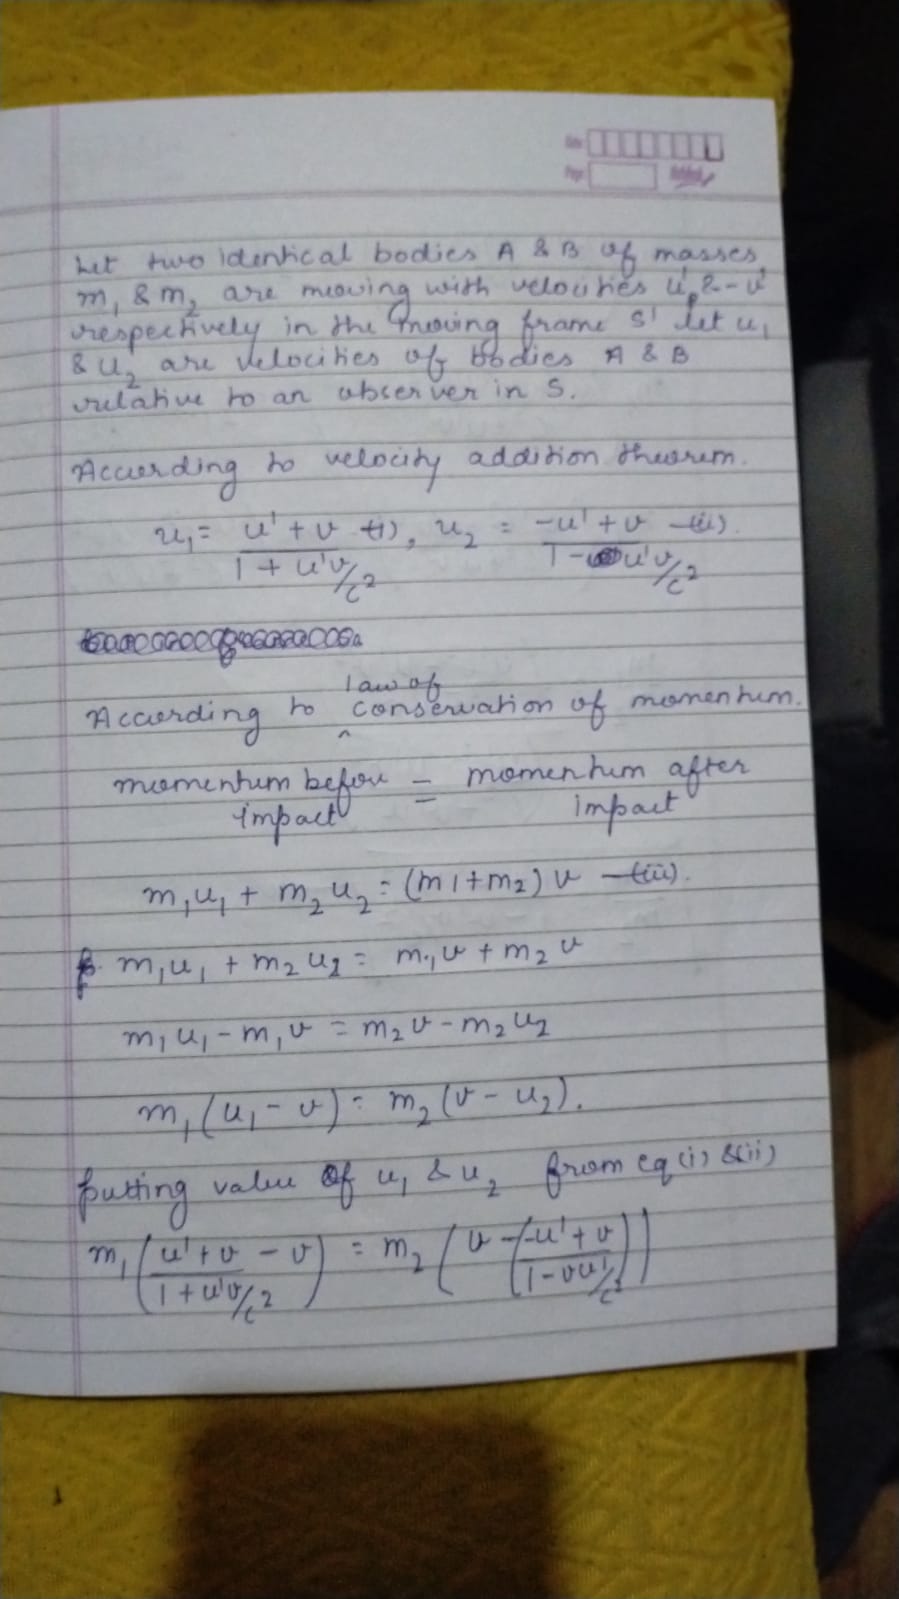 Date
Page
Let two identical bodies A & B of masses,
m₁ & m₂ are moving with velocities u' & -u'
respectively in the moving frame S' let u₁
& u₂ are velocities of bodies A & B
relative to an observer in S.
According to velocity addition theorem.
u₁ = (u' + v)/(1 + u'v/c²) —(i), u₂ = (-u' + v)/(1 - u'v/c²) —(ii).
According to law of conservation of momentum.
momentum before impact = momentum after impact
m₁u₁ + m₂u₂ = (m1 + m₂) v —(iii).
m₁u₁ + m₂u₂ = m₁v + m₂v
m₁u₁ - m₁v = m₂v - m₂u₂
m₁(u₁ - v) = m₂(v - u₂).
putting value of u₁ & u₂ from eq (i) & (ii)
m₁((u' + v)/(1 + u'v/c²) - v) = m₂(v - ((-u' + v)/(1 - vu'/c²)))